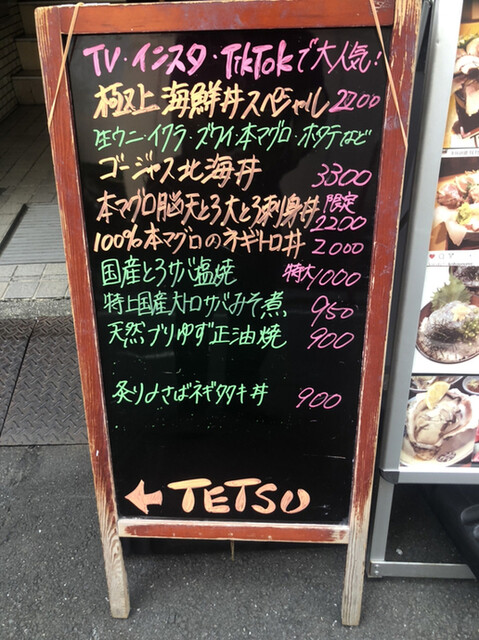 TV・インスタ・TikTokで大人気!
極上海鮮丼スペシャル 2200
生ウニ・イクラ・ズワイ・本マグロ・ホタテなど
ゴージャス北海丼 3300
本マグロ脳天とろ大とろ刺身丼 限定 2200
100%本マグロのネギトロ丼 2000
国産とろサバ塩焼 特大 1000
特上国産大トロサバみそ煮 950
天然ブリゆず正油焼 900
炙り〆さばネギタタキ丼 900
← TETSU